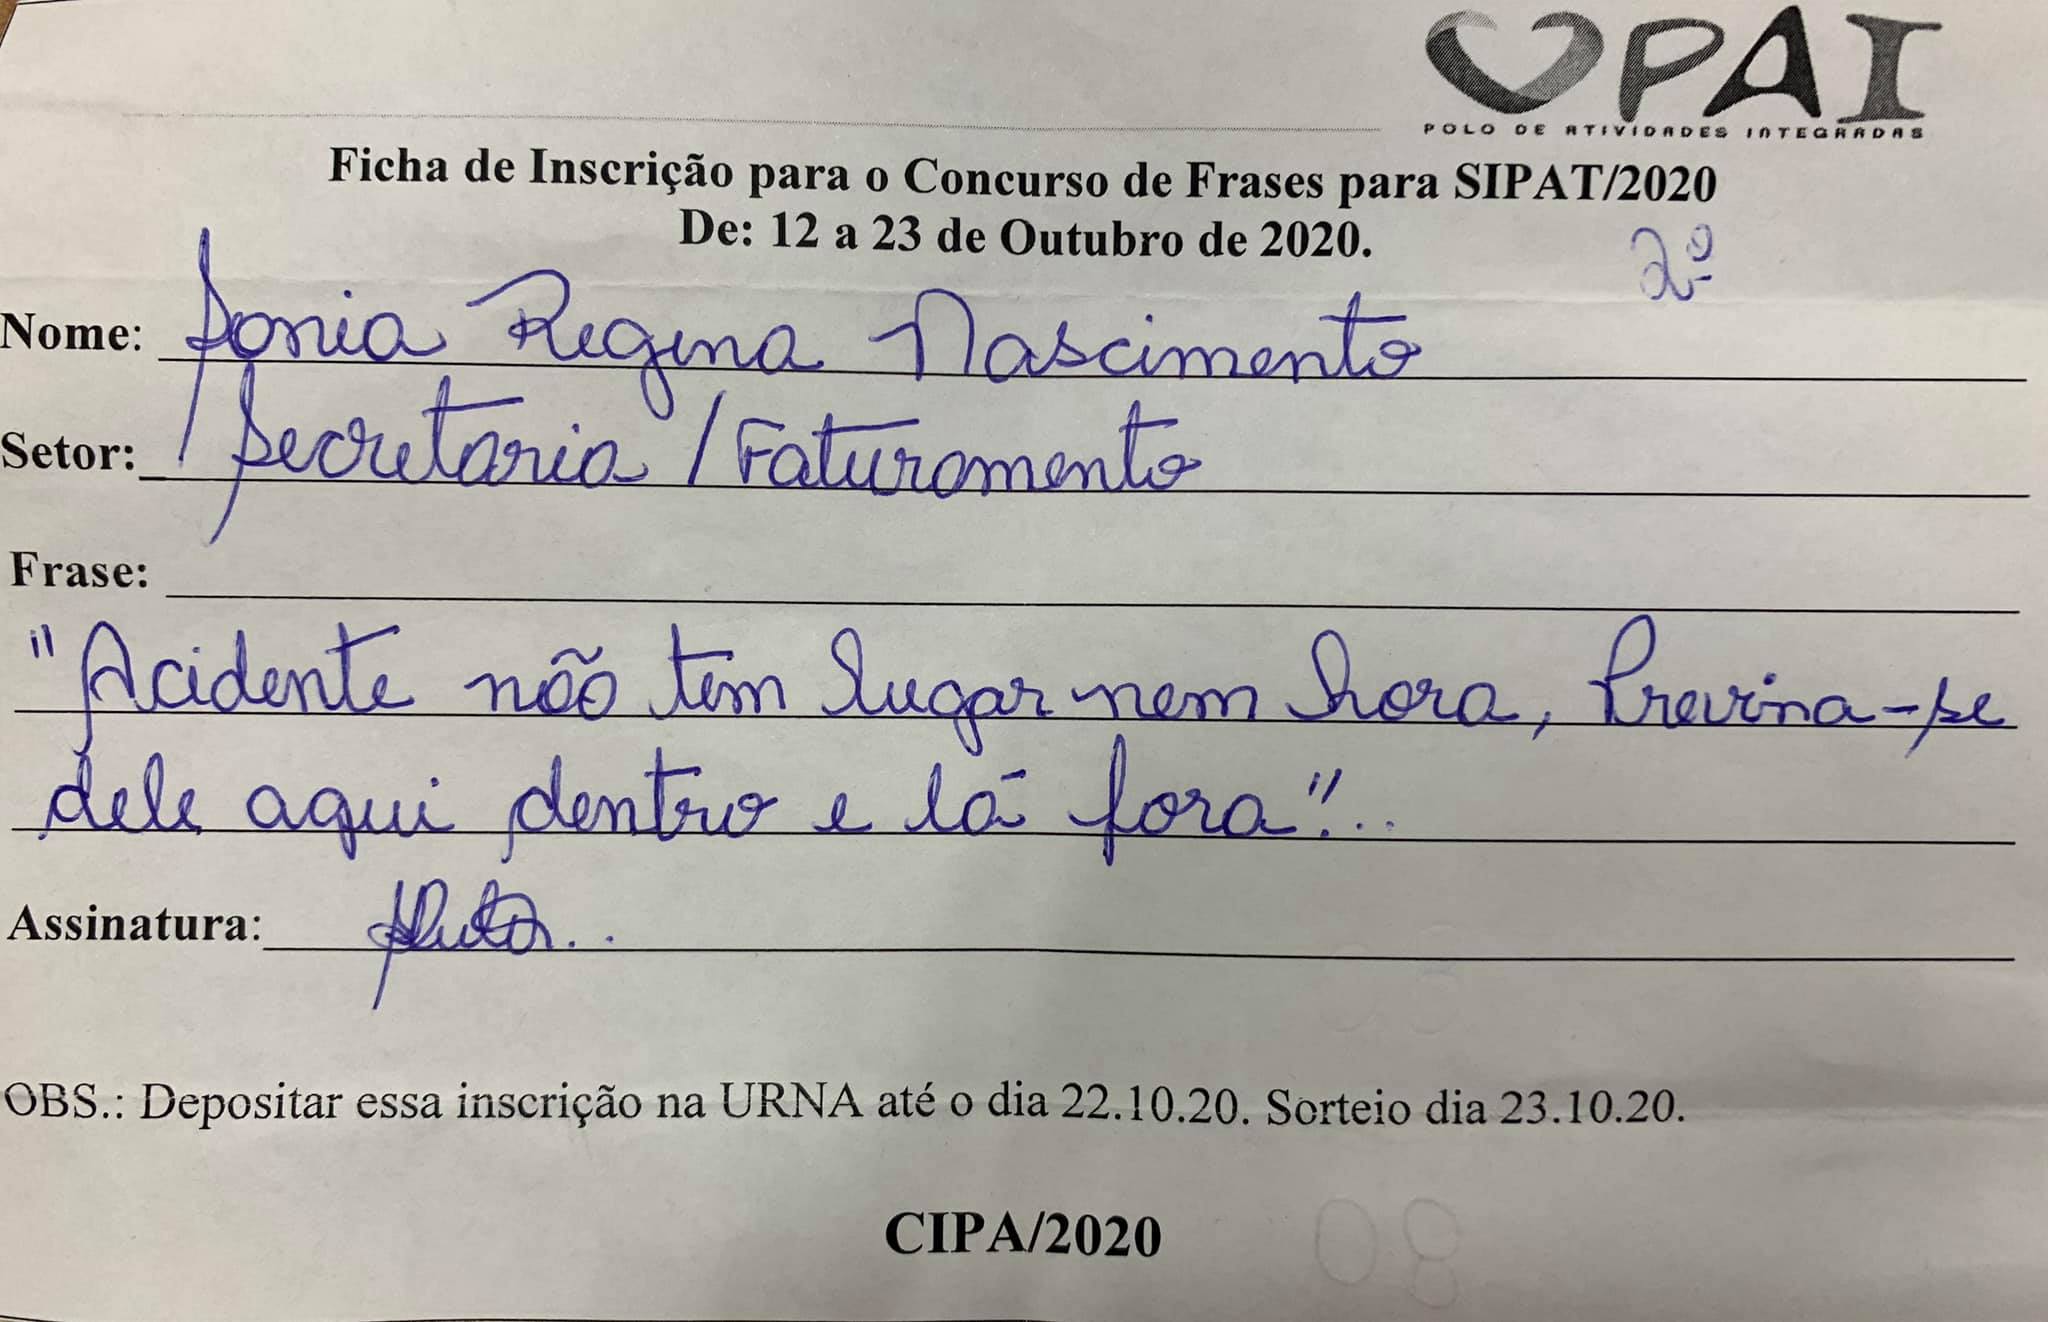 PAI
POLO DE ATIVIDADES INTEGRADAS
Ficha de Inscrição para o Concurso de Frases para SIPAT/2020
De: 12 a 23 de Outubro de 2020.
2º
Nome: Sonia Regina Nascimento
Setor: Secretaria / Faturamento
Frase:
"Acidente não tem lugar nem hora, Previna-se
dele aqui dentro e lá fora"!..
Assinatura:
OBS.: Depositar essa inscrição na URNA até o dia 22.10.20. Sorteio dia 23.10.20.
CIPA/2020